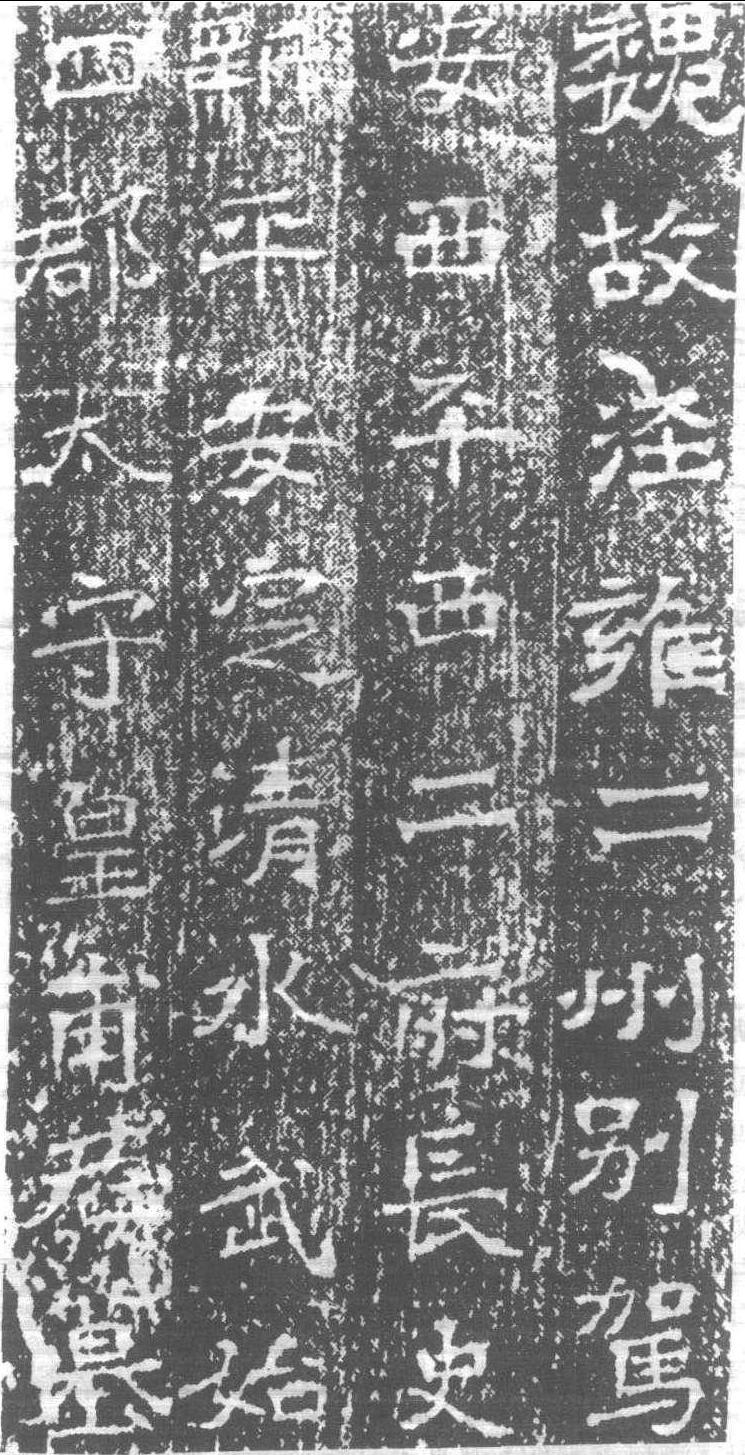 魏故涇雍二州別駕
安西平西二府長史
新平安定清水武始
四郡太守皇甫墓